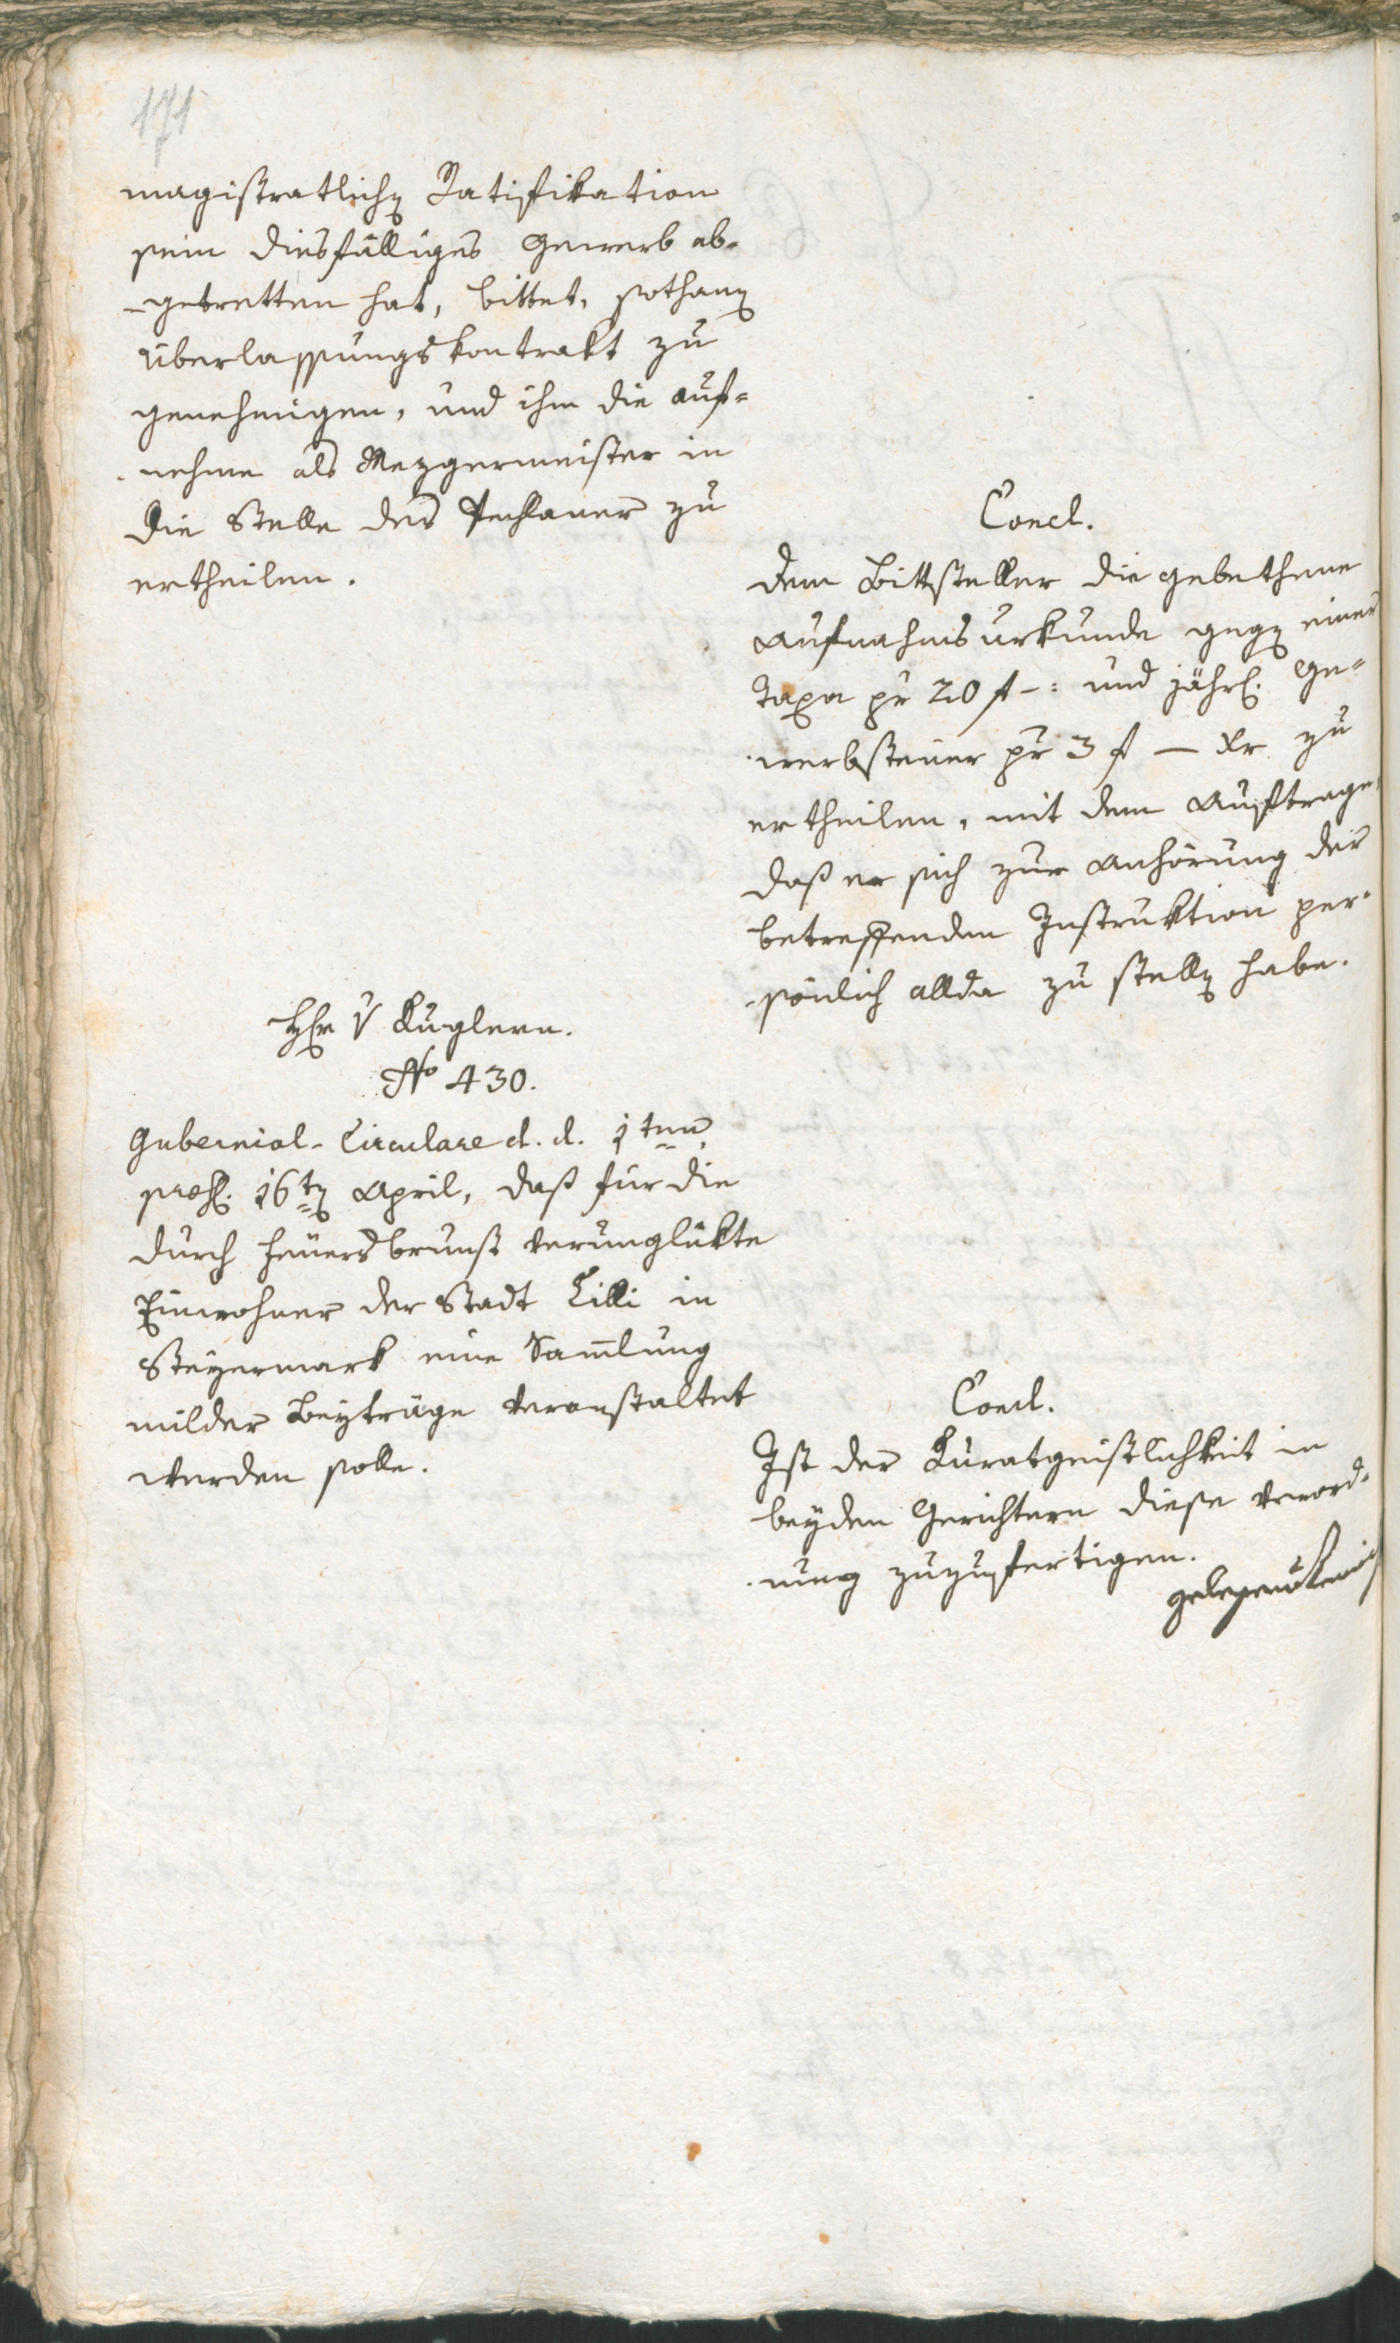 171
magistratlichen Ratifikation
sein diesfälliges Gewerb ab-
-getretten hat, bittet, sothanen
Überlassungskontrakt zu
genehmigen, und ihm die Auf-
nehme als Mezgermeister in
die Stelle des Pechlaner zu
ertheilen.
Concl.
Dem Bittsteller die gebethene
Aufnahmsurkunde gegen einer
Taxa pr 20 f -: und jährl. Ge-
werbsteuer pr 3 f — Xr zu
ertheilen, mit dem Auftrage,
daß er sich zur Anhörung der
betreffenden Instruktion per-
sönlich allda zu stellen habe.
Hr v Kuglern.
No 430.
Gubernial-Circulare d. d. 1ten
praes. 16ten April, daß für die
durch Feuersbrunst verunglükte
Einwohner der Stadt Cilli in
Steyermark eine Samlung
milder Beyträge veranstaltet
werden solle.
Concl.
Ist der Kuratgeistlichkeit in
beyden Gerichtern diese Verord-
nung zuzufertigen.